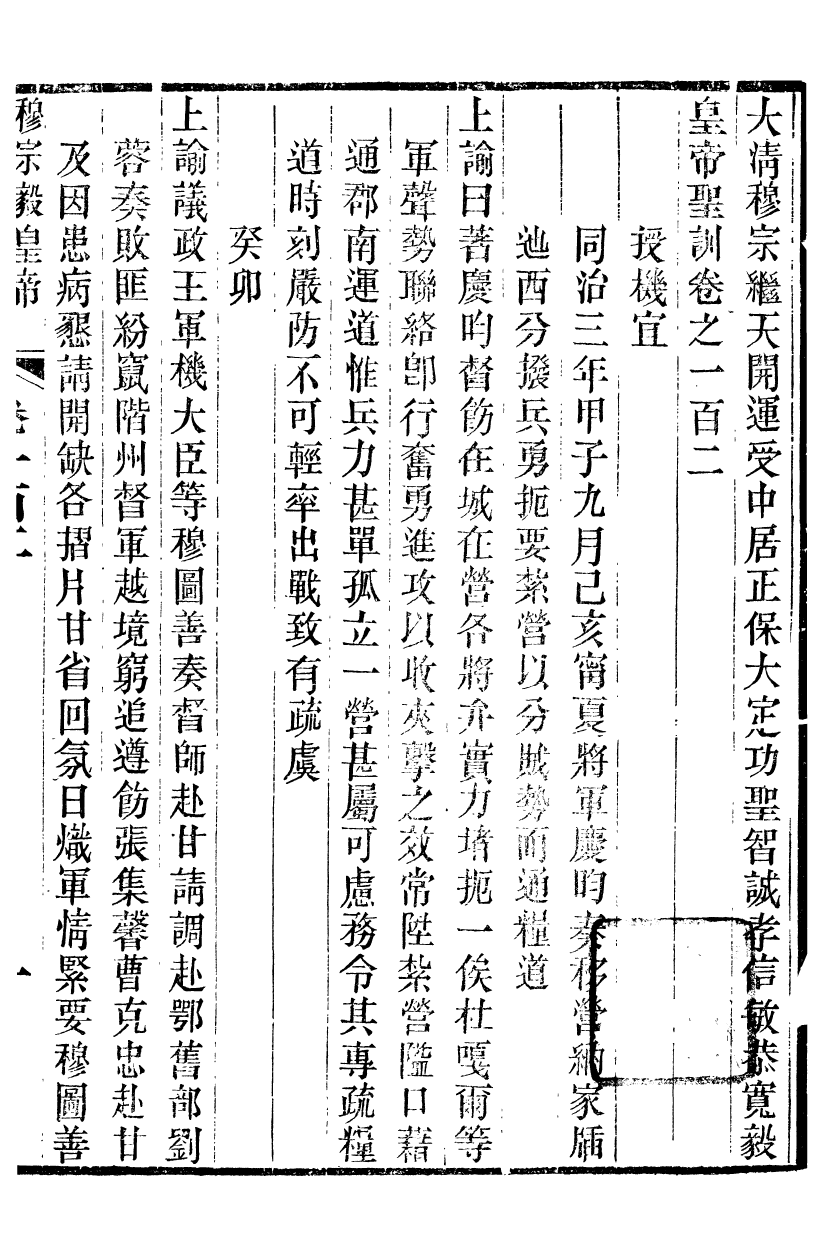 大淸穆宗繼天開運受中居正保大定功聖智誠孝信敏恭寬毅
皇帝聖訓卷之一百二
授機宜
同治三年甲子九月己亥甯夏將軍慶昀奏移營納家牐
迤西分撥兵勇扼要紮營以分賊勢而通糧道
上諭曰著慶昀督飭在城在營各將弁實力堵扼一俟杜嘎爾等
軍聲勢聯絡卽行奮勇進攻以收夾擊之效常陞紮營隘口藉
通郡南運道惟兵力甚單孤立一營甚屬可慮務令其專疏糧
道時刻嚴防不可輕率出戰致有疏虞
癸卯
上諭議政王軍機大臣等穆圖善奏督師赴甘請調赴鄂舊部劉
蓉奏敗匪紛竄階州督軍越境窮追遵飭張集馨曹克忠赴甘
及因患病懇請開缺各摺片甘省回氛日熾軍情緊要穆圖善
穆宗毅皇帝 卷一百二 一